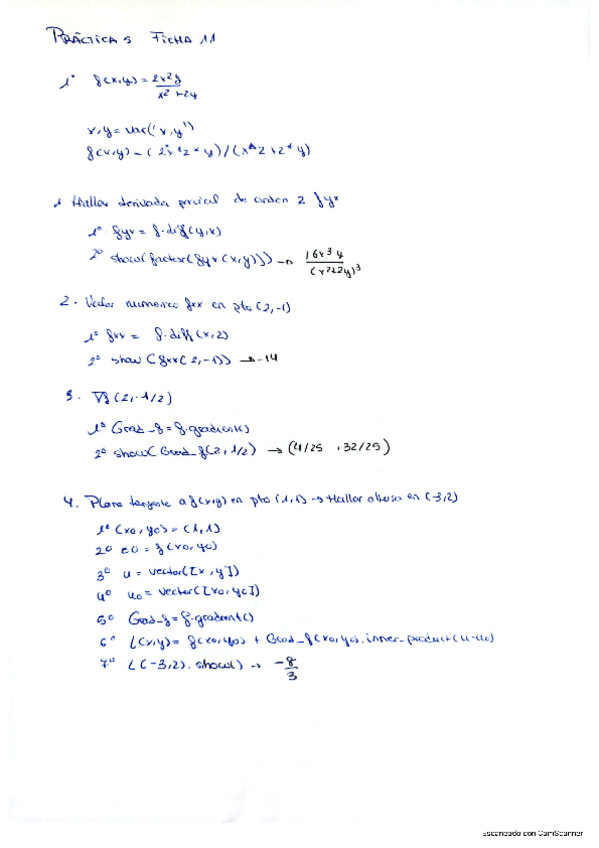 PRÁCTICA 5 FICHA 11
1° f(x,y) = 2x²y / x²+2y
x,y = var('x,y')
f(x,y) = (2*x^2*y)/(x^2+2*y)
1 Hallar derivada parcial de orden 2 fyx
1° fyx = f.diff(y,x)
2° show(factor(fyx(x,y))) → 16x³y / (x²+2y)³
2. Valor numerico fxx en pto (2,-1)
1° fxx = f.diff(x,2)
2° show(fxx(2,-1)) → -14
3. ∇f(2,1/2)
1° Grad_f = f.gradient()
2° show(Grad_f(2,1/2) → (4/25 , 32/25)
4. Plano tangente a f(x,y) en pto (1,1) → Hallar altura en (-3,2)
1° (x0,y0) = (1,1)
2° z0 = f(x0,y0)
3° u = vector([x,y])
4° u0 = vector([x0,y0])
5° Grad_f = f.gradient()
6° L(x,y) = f(x0,y0) + Grad_f(x0,y0).inner_product(u-u0)
7° L(-3,2).show() → -8/3
Escaneado con CamScanner